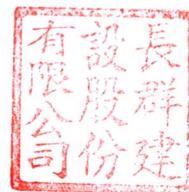 長群建
設股份
有限公司